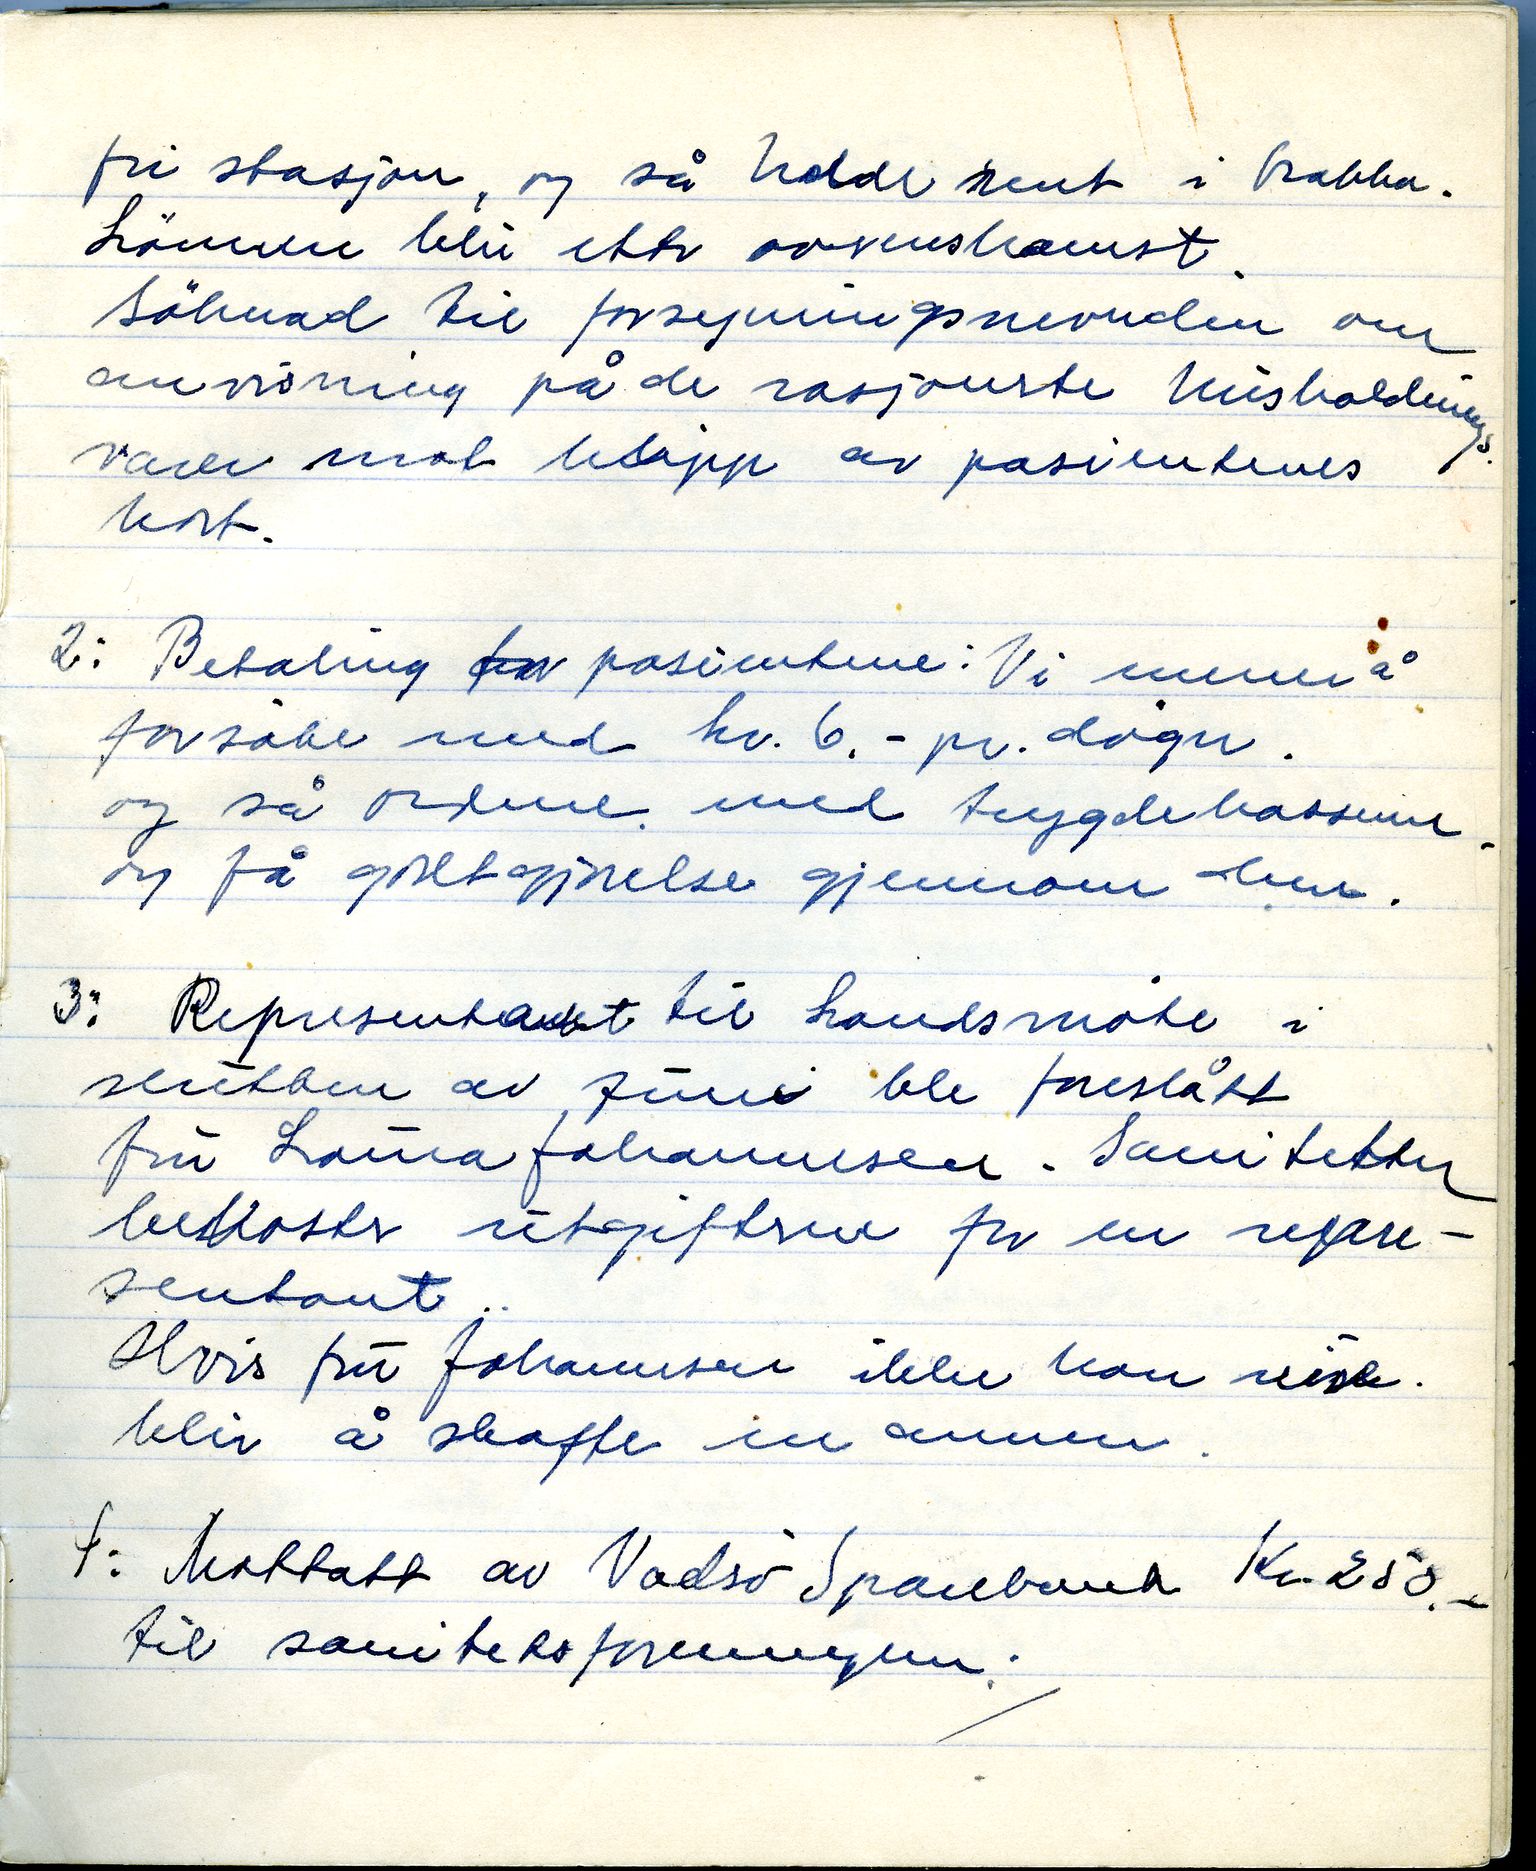 fri stasjon, og så holde rent i brakka.
Lönnen blir etter overenskomst.
Söknad til forsyningsnevnden om
anvisning på de rasjonerte husholdnings.
varer mot klipp av pasientenes
kort.
2: Betaling for pasientene: Vi mener å
forsöke med kr. 6.- pr. dögn.
og så ordne med trygdekassene.
og få godtgjörelse gjennom den.
3: Representant til Landsmöte i
slutten av Juni ble foreslått
fru Laura Johannesen. Saniteten
bekoster utgiftene for en repre-
sentant..
Hvis fru Johannesen ikke kan reise.
blir å skaffe en annen.
4: Mottatt av Vadsö Sparebank Kr. 250.-
til sanitetsforeningen.